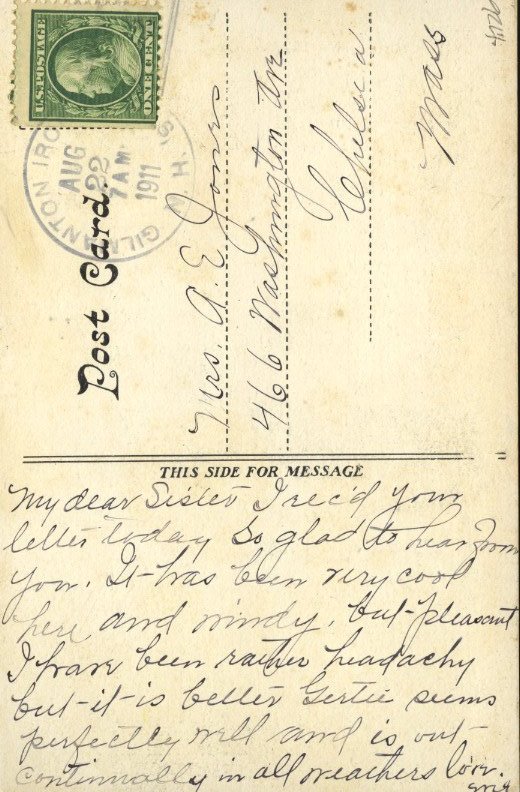 U.S. POSTAGE
ONE CENT
GILMANTON IRON
S, N.H.
AUG
22
7 AM
1911
Post Card.
Mrs. A. E. Jones
466 Washington Ave
Chelsea
Mass
THIS SIDE FOR MESSAGE
My dear Sister I rec'd your
letter today so glad to hear from
you. It has been very cool
here and windy, but pleasant
I have been rather headachy
but it is better Gertie seems
perfectly well and is out
continually in all weathers love.